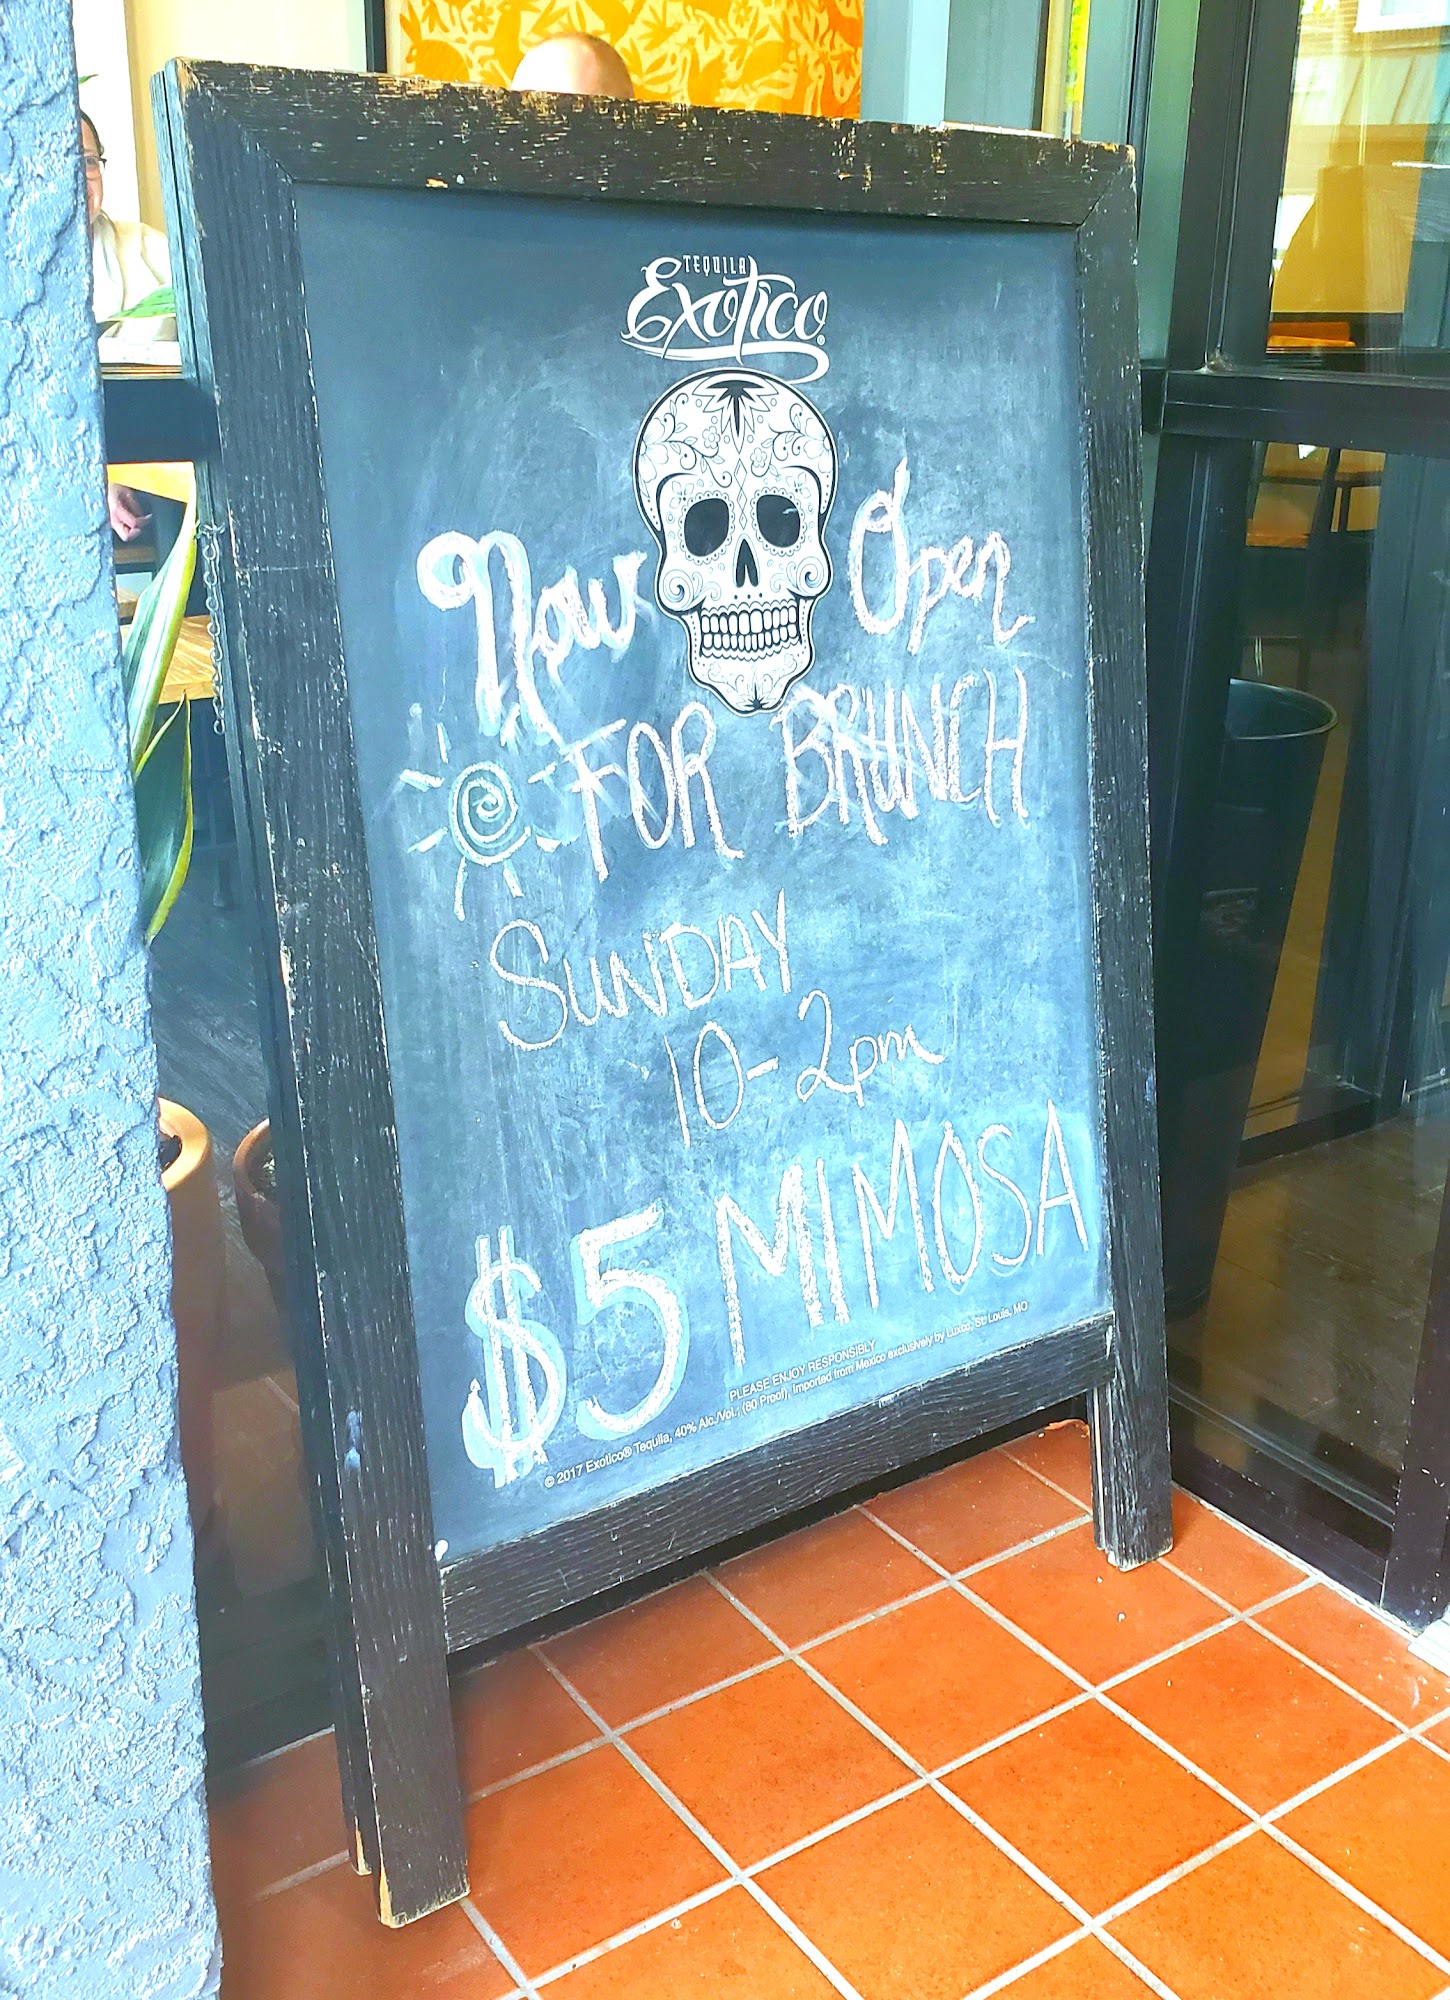 TEQUILA
Exotico®
Now Open
FOR BRUNCH
SUNDAY
10-2pm
$5 MIMOSA
PLEASE ENJOY RESPONSIBLY
© 2017 Exotico® Tequila, 40% Alc./Vol., (80 Proof). Imported from Mexico exclusively by Luxco, St. Louis, MO